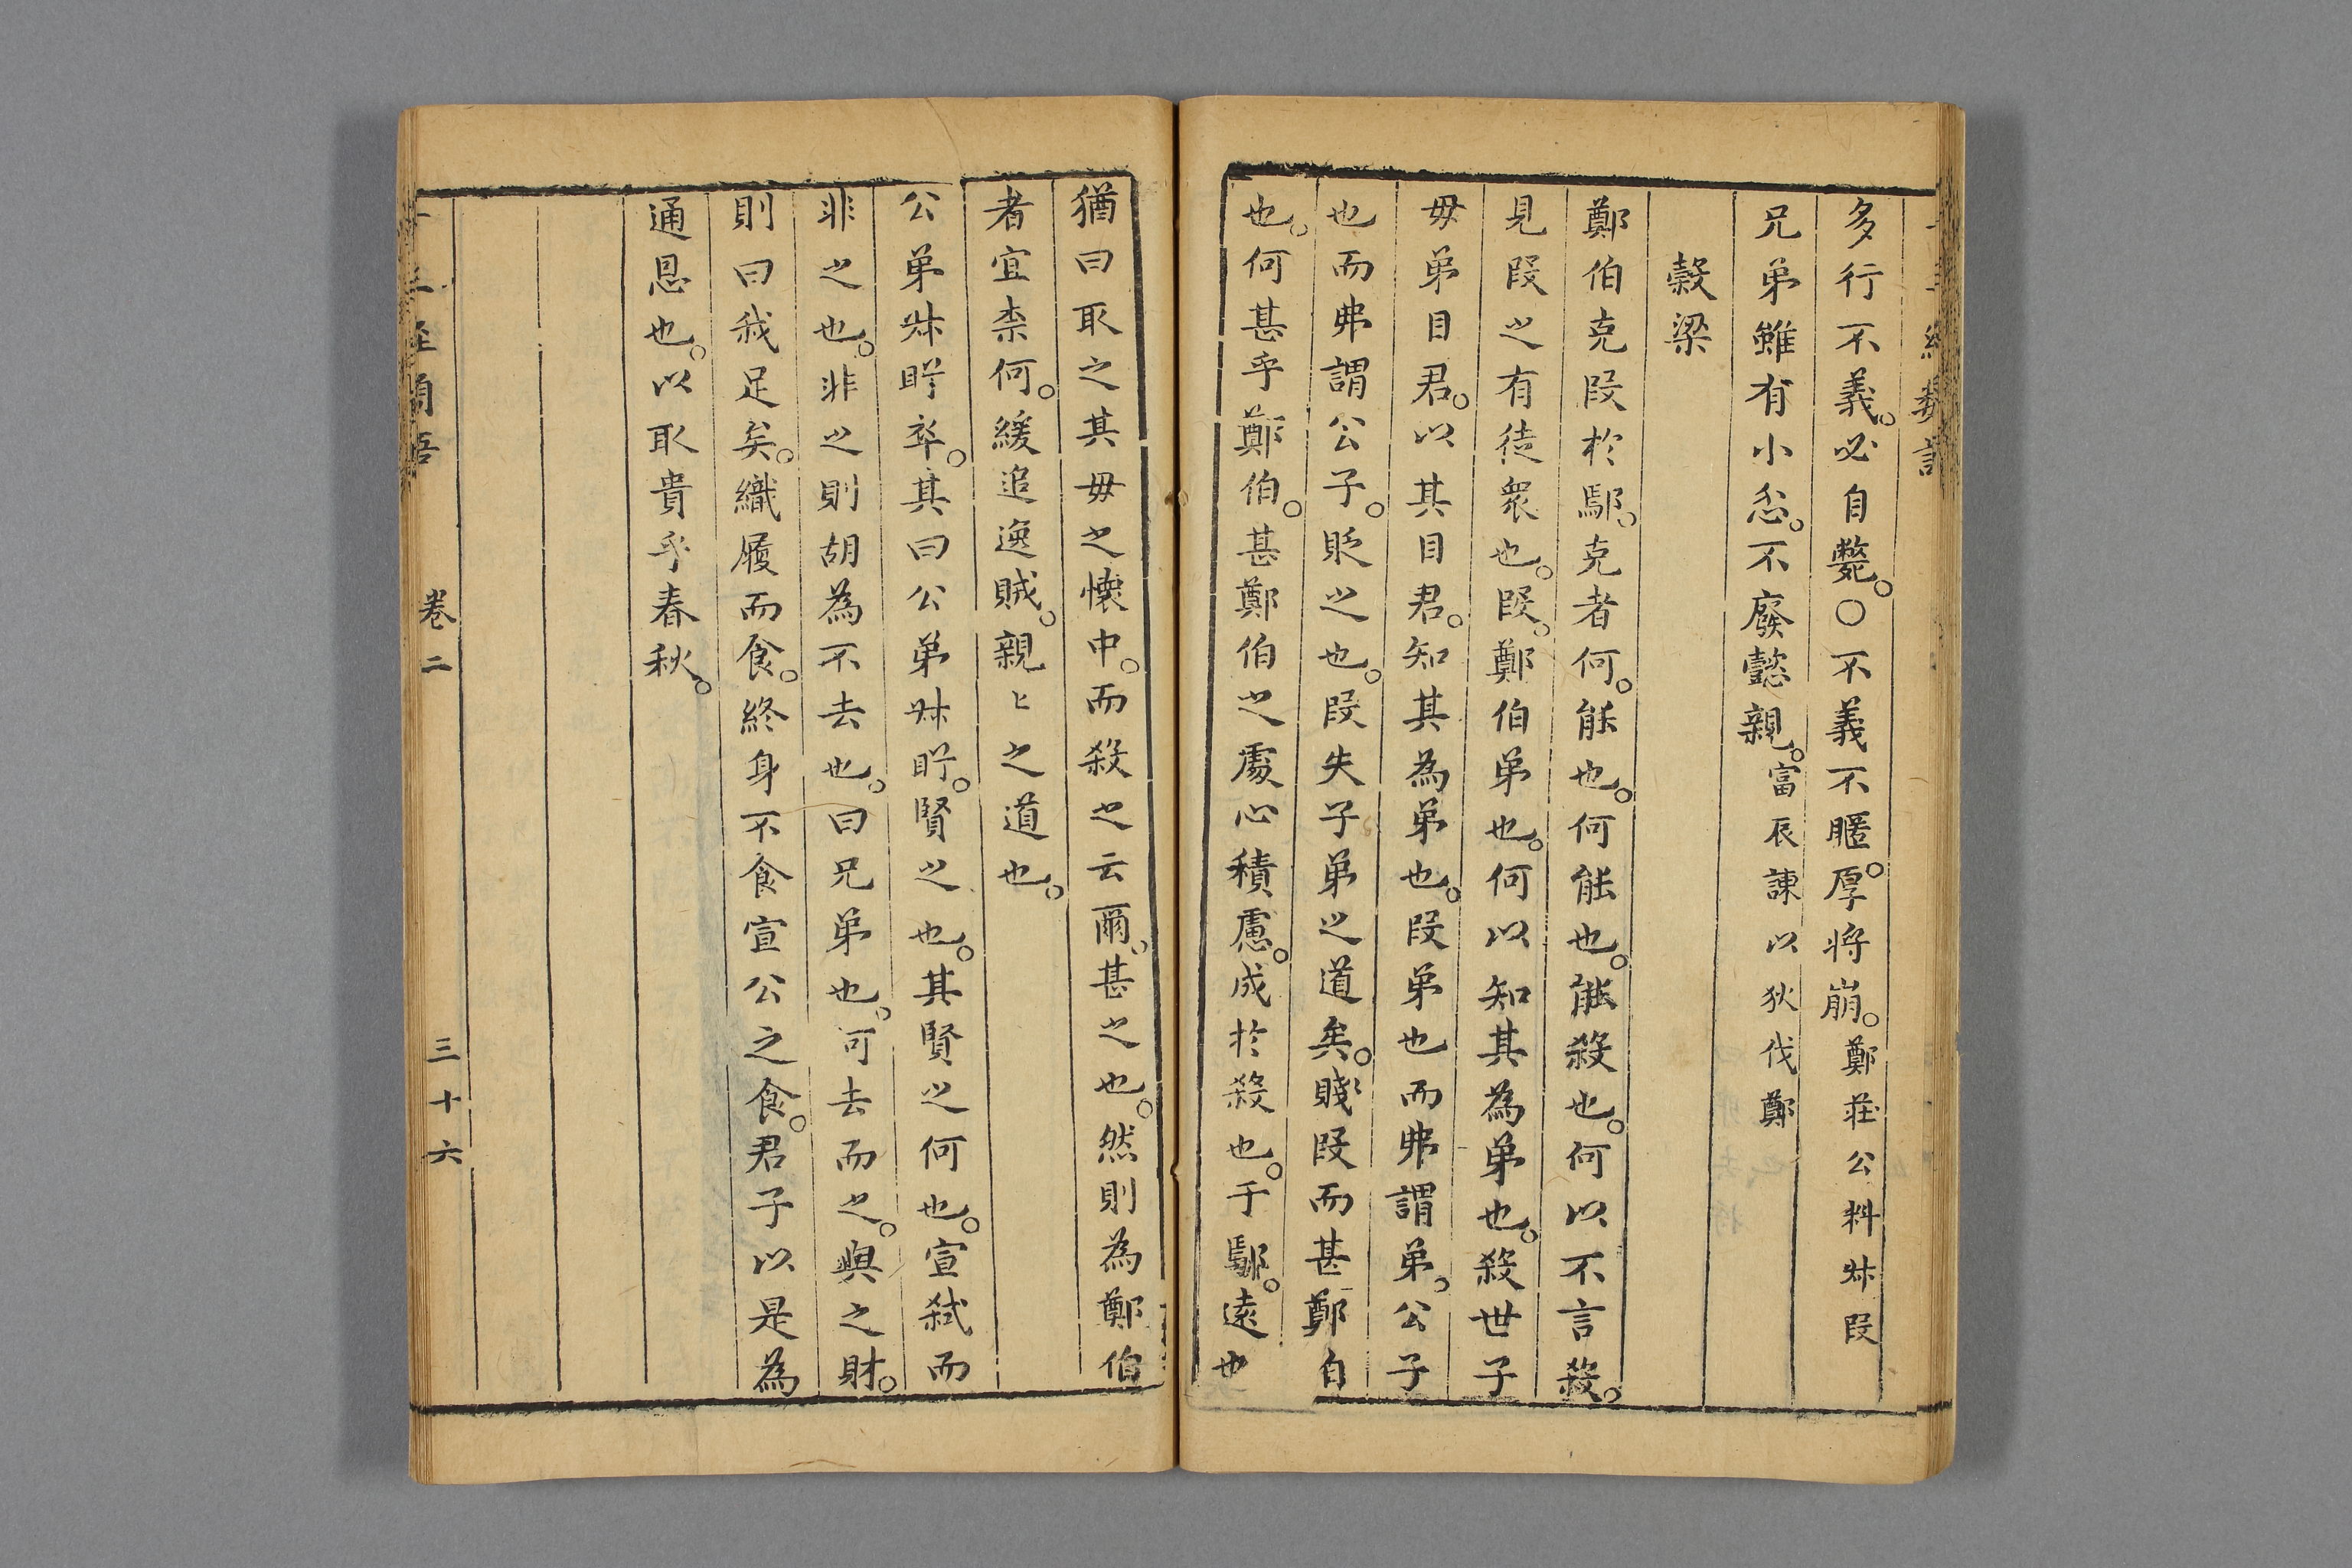 多行不義。必自斃。○不義不暱。厚將崩。鄭莊公料叔段
兄弟雖有小忿。不廢懿親。富辰諫以狄伐鄭
穀梁
鄭伯克段於鄢。克者何。能也。何能也。能殺也。何以不言殺。
見段之有徒眾也。段。鄭伯弟也。何以知其為弟也。殺世子
毋弟目君。以其目君。知其為弟也。段弟也而弗謂弟。公子
也而弗謂公子。貶之也。段失子弟之道矣。賤段而甚鄭自
也。何甚乎鄭伯。甚鄭伯之處心積慮。成於殺也。于鄢。遠也
猶曰取之其毋之懷中。而殺之云爾。甚之也。然則為鄭伯
者宜柰何。緩追逸賊。親〻之道也。
公弟叔肸卒。其曰公弟叔肸。賢之也。其賢之何也。宣弒而
非之也。非之則胡為不去也。曰兄弟也。可去而之。與之財。
則曰我足矣。織屨而食。終身不食宣公之食。君子以是為
通恩也。以取貴乎春秋。
卷二
三十六